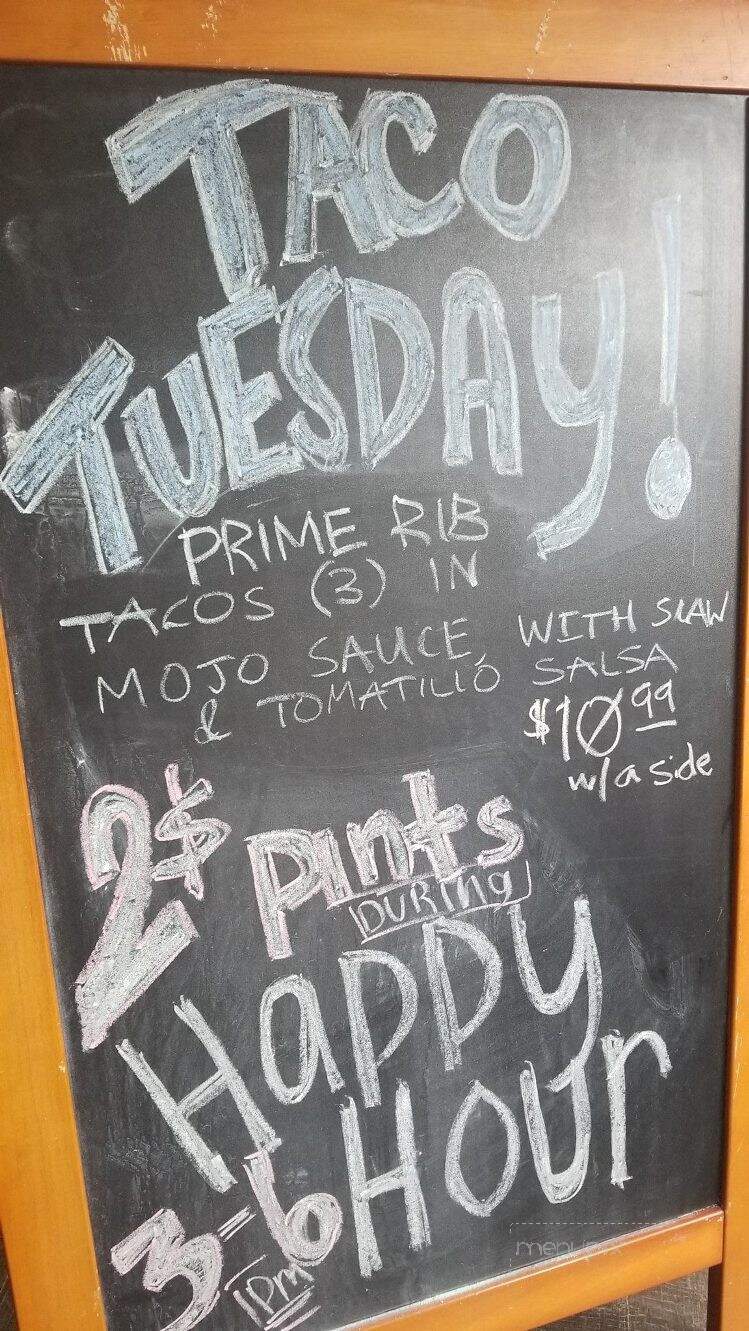 TACO
TUESDAY!
PRIME RIB
TACOS (3) IN
MOJO SAUCE, WITH SLAW
& TOMATILLO SALSA
$10.99
w/a side
2$ pints
DURING
Happy
Hour
3-6
PM
menupix